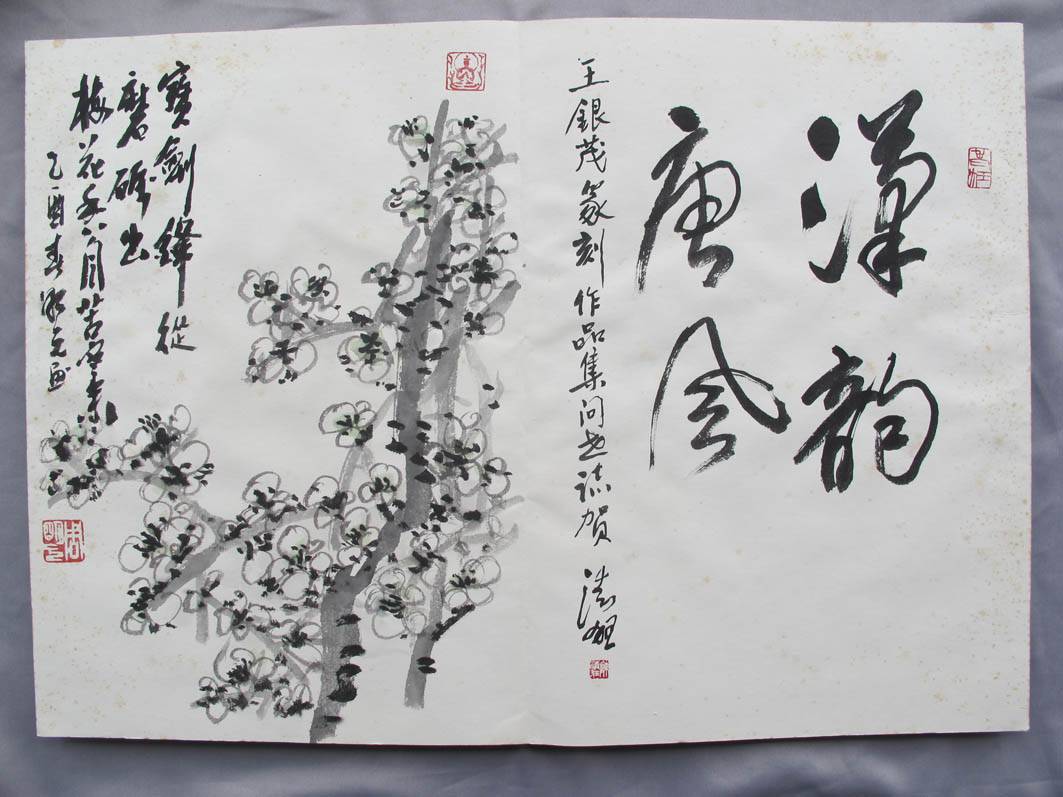 漢韵
唐风
王銀茂篆刻作品集问世誌賀
寶劍鋒從
磨砺出
梅花香自苦寒来
乙酉春